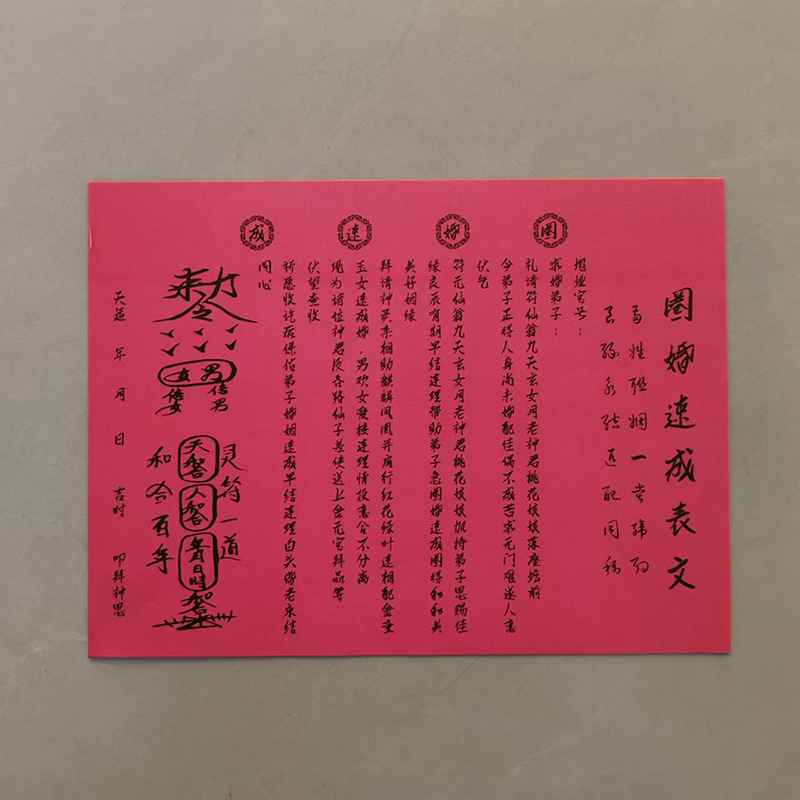 圆婚速成表文
两姓联姻一堂缔约
良缘永结匹配同称
圆 婚 速 成
地址宅号：
求婚弟子：
礼请符仙翁九天玄女月老神君桃花娘娘落座坛前
今弟子正得人身尚未婚配佳偶不成苦求无门难遂人意
伏乞
符元仙翁九天玄女月老神君桃花娘娘加持弟子恩赐佳
缘良辰有期早结连理帮助弟子急图婚速成圆得和和美
美好姻缘
拜请神灵来相助麒麟凤凰并肩行红花绿叶连相配金童
玉女速成婚，男欢女爱接连理情投意合不分离
现为诸位神君及各路仙子差使送上金元宝拜品等
伏望查收
祈愿收讫后保佑弟子婚姻速成早结连理白头偕老永结
同心
灵符一道
和合百年
男
女
信男
信女
天
人
年月日時
天运 年 月 日 吉时 叩拜神恩